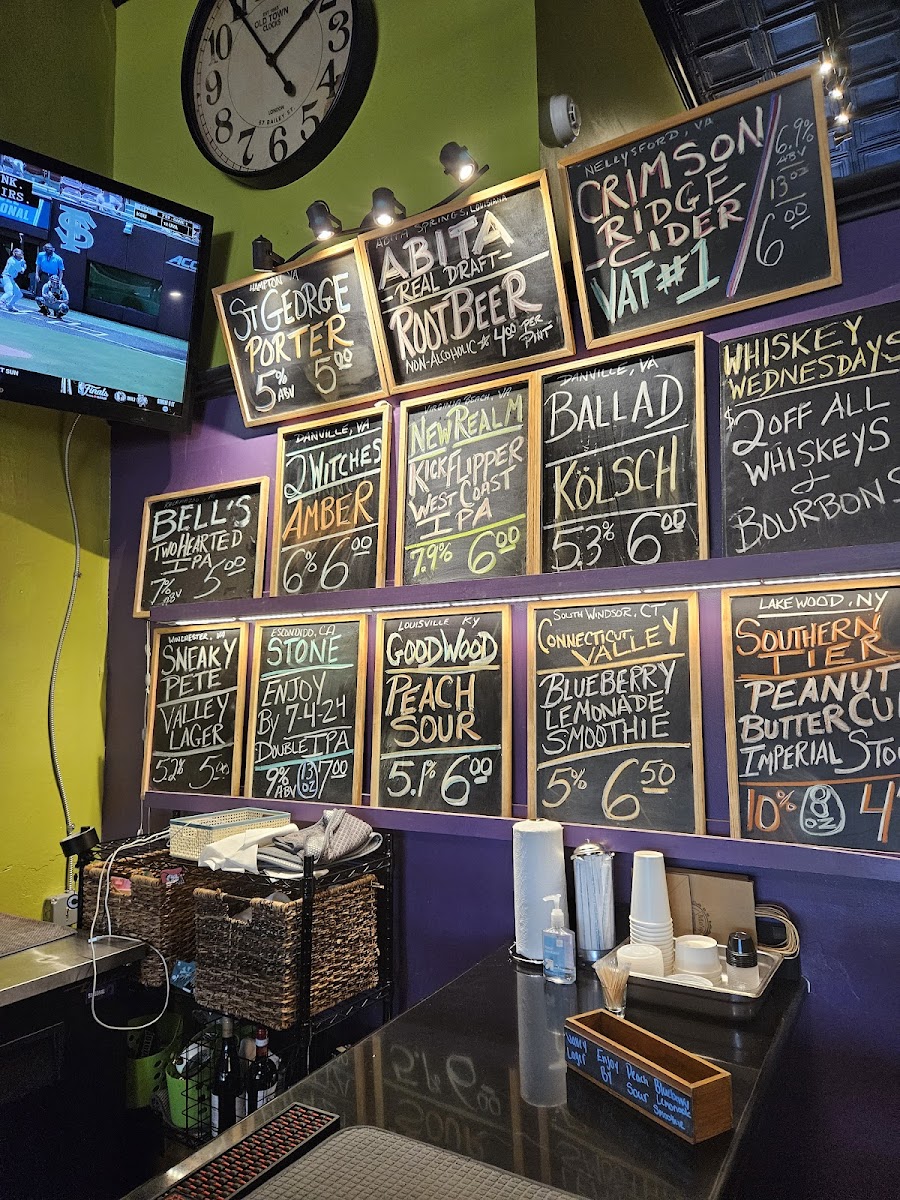 OLD TOWN
CLOCKS
10
9
8
7
6
5
4
3
LONDON
ST BAILEY ST
NK.
IRS.
ONAL
FS
ACC
Finals
HAMPTON, VA
ST GEORGE
PORTER
5%
ABV
5.00
ABITA SPRINGS, LOUISIANA
ABITA
-REAL DRAFT-
ROOT BEER
NON-ALCOHOLIC 4.00 PER
PINT
NELLYSFORD, VA
CRIMSON
RIDGE
CIDER
VAT #1
6.9%
ABV
13 oz
6.00
BELL'S
TWO HEARTED
IPA
7%
ABV
5.00
DANVILLE, VA
2 WITCHES
AMBER
6% 6.00
VIRGINIA BEACH, VA
NEW REALM
KICKFLIPPER
WEST COAST
IPA
7.9% 6.00
DANVILLE, VA
BALLAD
KÖLSCH
5.3% 6.00
WHISKEY
WEDNESDAYS
$2 OFF ALL
WHISKEYS
&
BOURBONS
WINCHESTER, VA
SNEAKY
PETE
VALLEY
LAGER
5.2% 5.00
ESCONDIDO, CA
STONE
ENJOY
BY 7-4-24
DOUBLE IPA
9%
ABV
13
oz
7.00
LOUISVILLE KY
GOODWOOD
PEACH
SOUR
5.1% 6.00
SOUTH WINDSOR, CT
CONNECTICUT
VALLEY
BLUEBERRY
LEMONADE
SMOOTHIE
5% 6.50
LAKEWOOD, NY
SOUTHERN
TIER
PEANUT
BUTTER CU
IMPERIAL STO
10% 8
oz
4
Valley
Lager
Enjoy
By
Peach
Sour
Blueberry
Lemonade
Smoothie